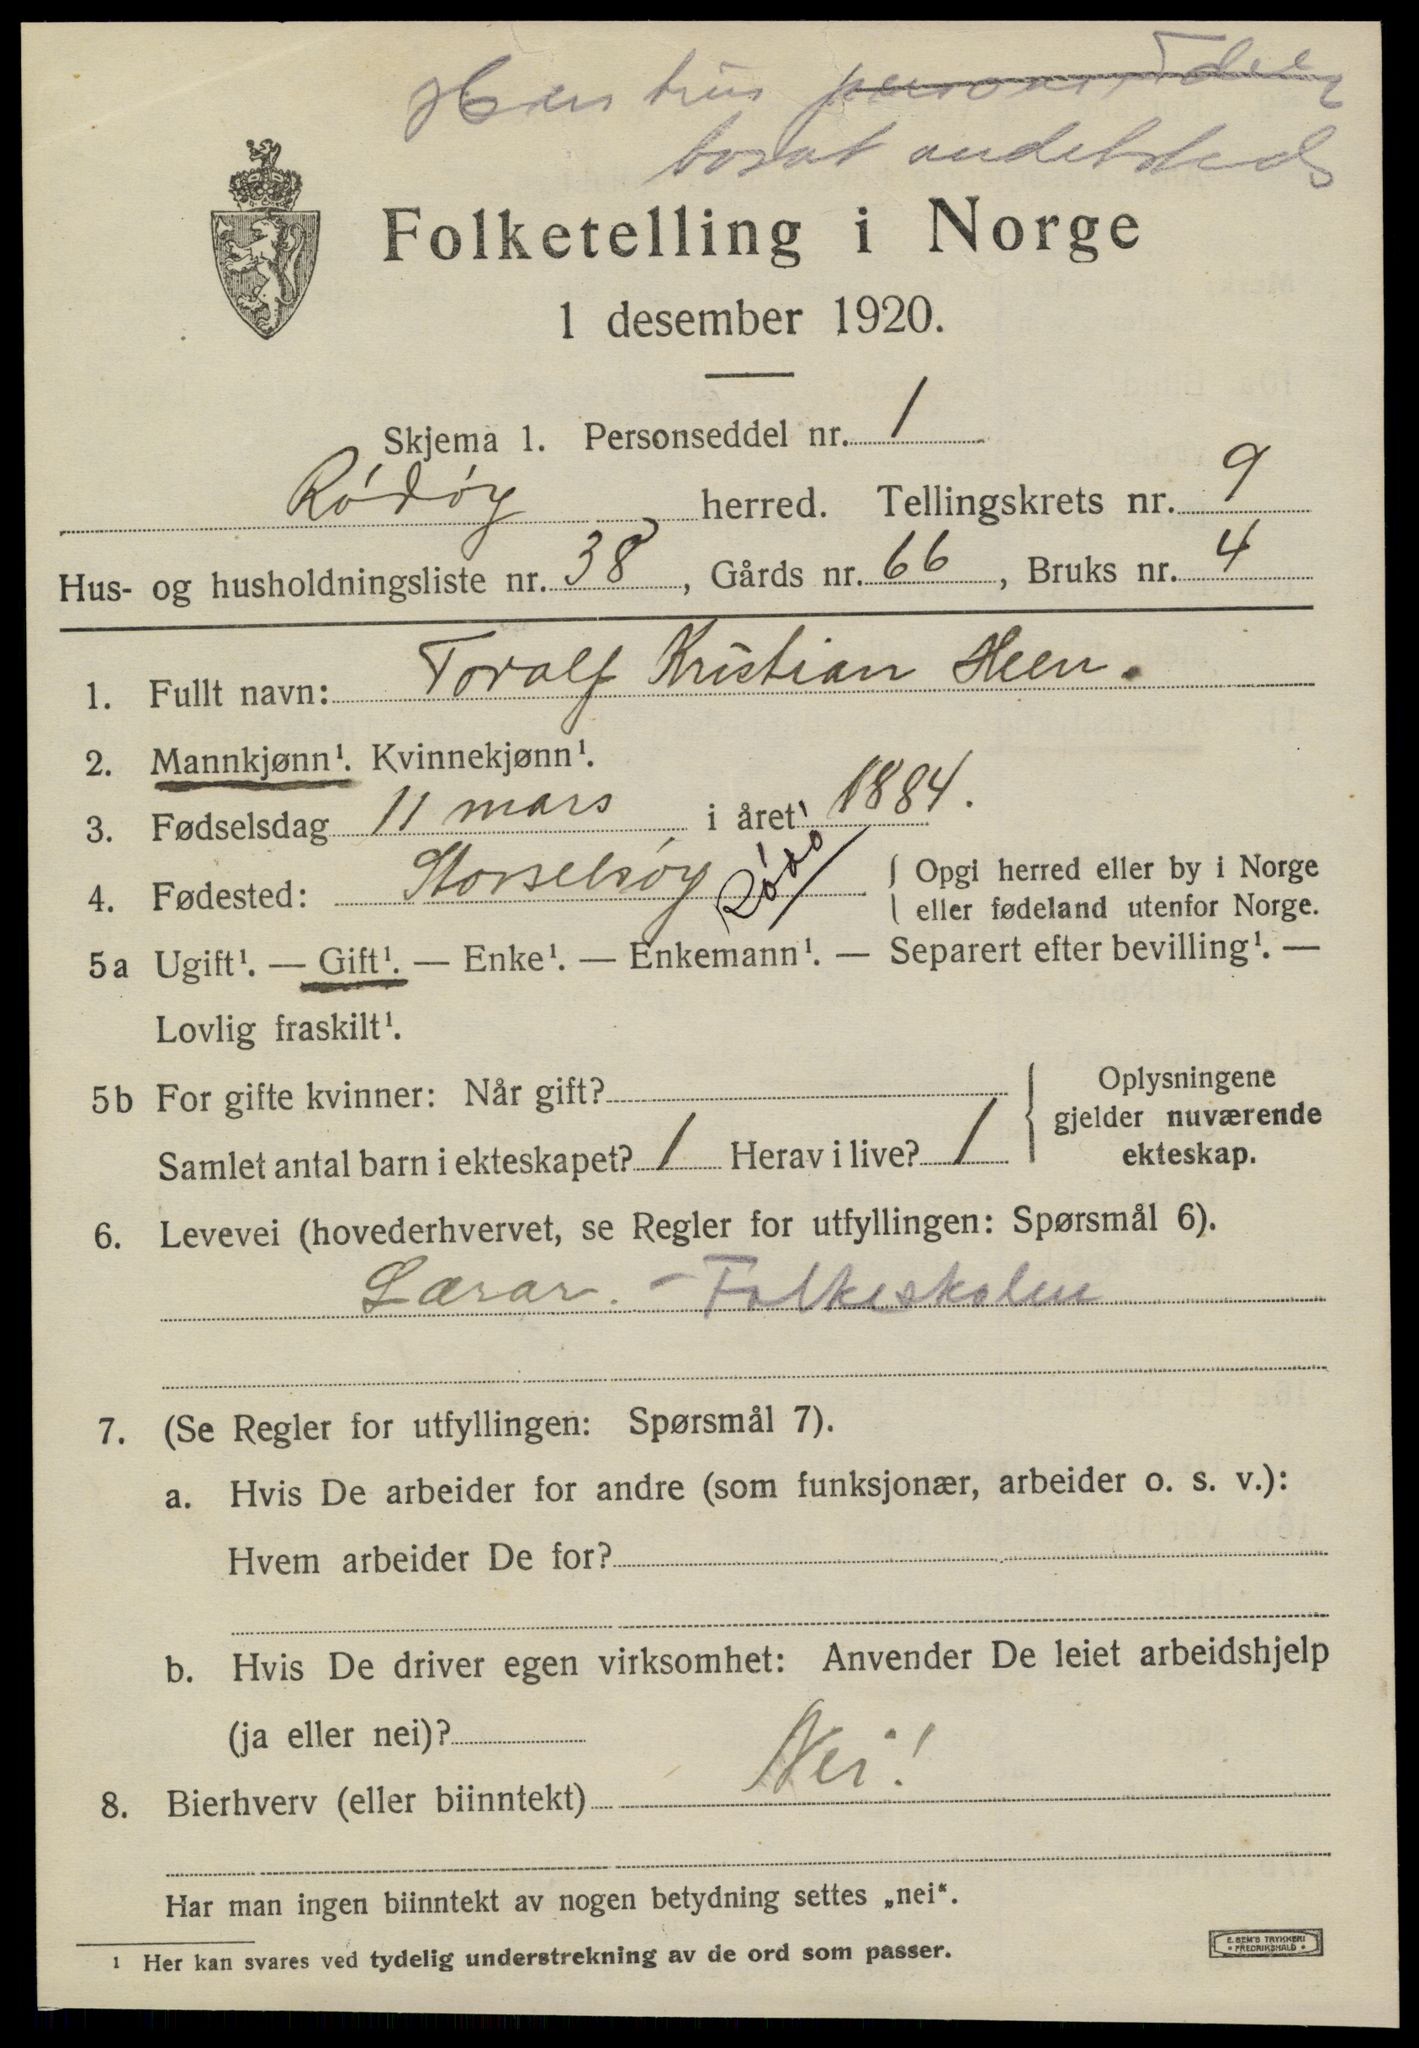 Hans hus personseddeler
bosat andetsteds
Folketelling i Norge
1 desember 1920.
Skjema 1. Personseddel nr. 1
Rødøy herred. Tellingskrets nr. 9
Hus- og husholdningsliste nr. 38, Gårds nr. 66, Bruks nr. 4
1. Fullt navn: Toralf Kristian Heen.
2. Mannkjønn¹. Kvinnekjønn¹.
3. Fødselsdag 11 mars i året 1884.
4. Fødested: Storselsøy Rødø { Opgi herred eller by i Norge
eller fødeland utenfor Norge.
5a Ugift¹. — Gift¹. — Enke¹. — Enkemann¹. — Separert efter bevilling¹. —
Lovlig fraskilt¹.
5b For gifte kvinner: Når gift?
Samlet antal barn i ekteskapet? 1 Herav i live? 1
{ Oplysningene
gjelder nuværende
ekteskap.
6. Levevei (hovederhvervet, se Regler for utfyllingen: Spørsmål 6).
Lærar. - Folkeskolen
7. (Se Regler for utfyllingen: Spørsmål 7).
a. Hvis De arbeider for andre (som funksjonær, arbeider o. s. v.):
Hvem arbeider De for?
b. Hvis De driver egen virksomhet: Anvender De leiet arbeidshjelp
(ja eller nei)?
8. Bierhverv (eller biinntekt) Nei!
Har man ingen biinntekt av nogen betydning settes „nei“.
¹ Her kan svares ved tydelig understrekning av de ord som passer.
E. SEM'S TRYKKERI
• FREDRIKSHALD •